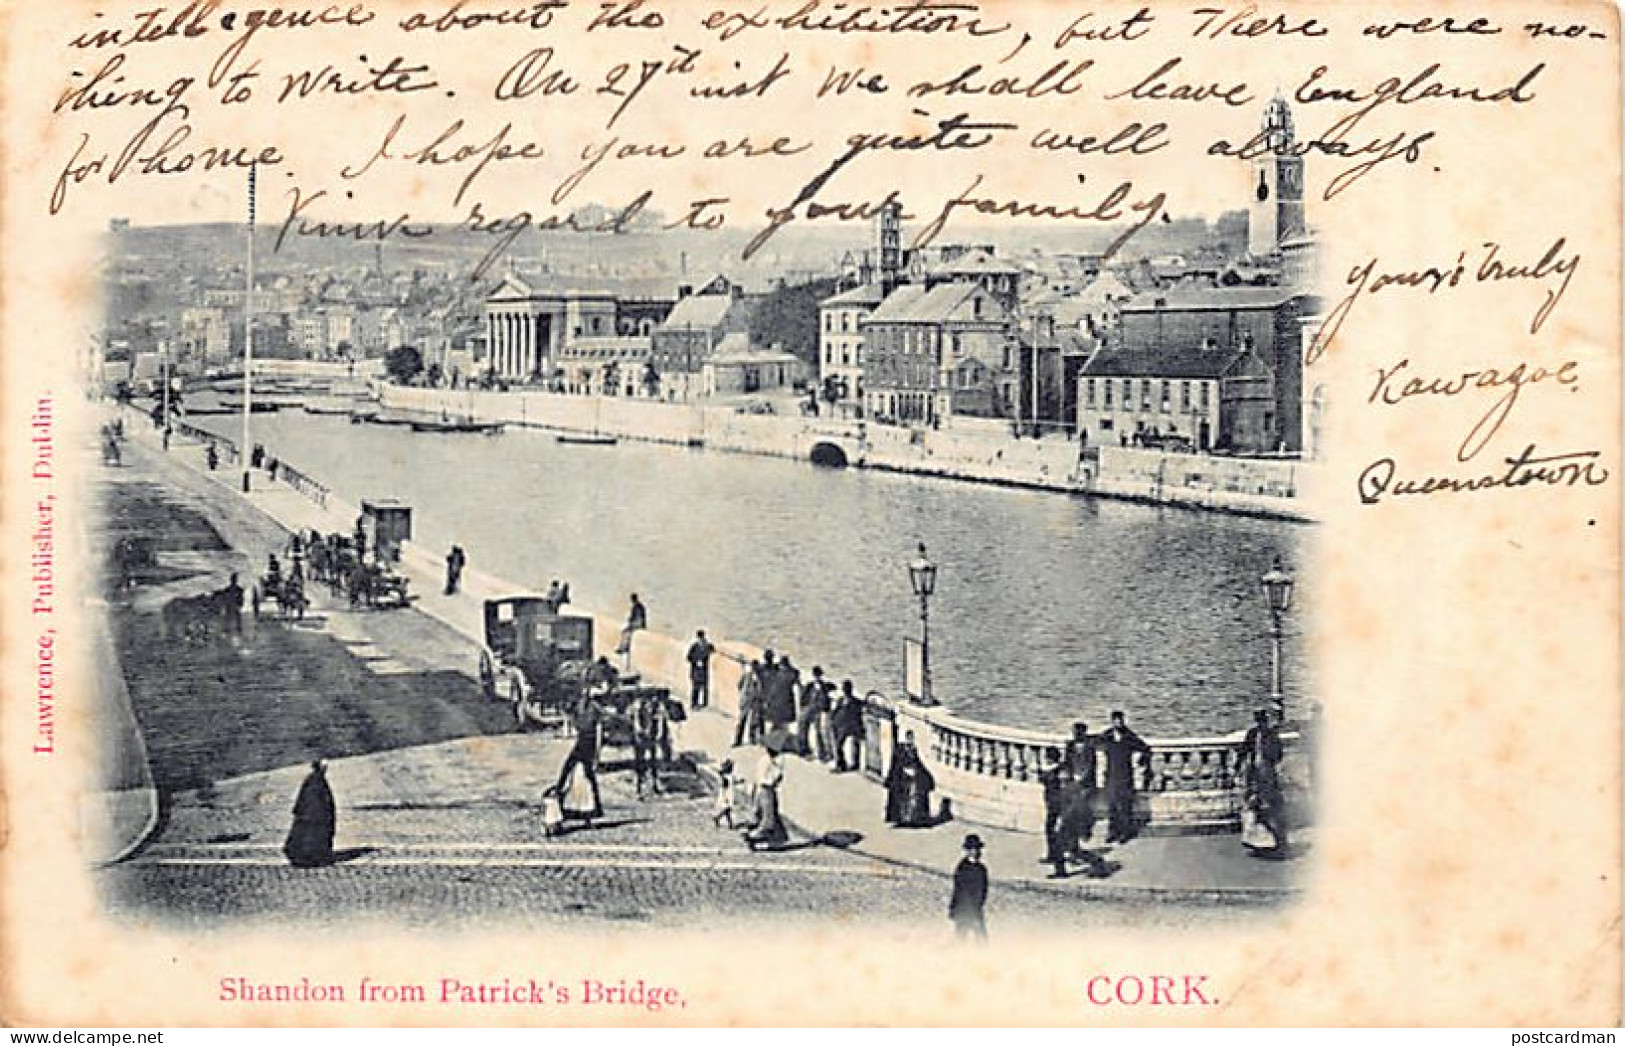 intelligence about the exhibition, but there were no-
thing to write. On 27th inst We shall leave England
for home. I hope you are quite well always.
Kink regard to your family.
Your's truly
Kawagoe.
Queenstown.
Lawrence, Publisher, Dublin.
Shandon from Patrick's Bridge,
CORK.
delcampe.net
postcardman